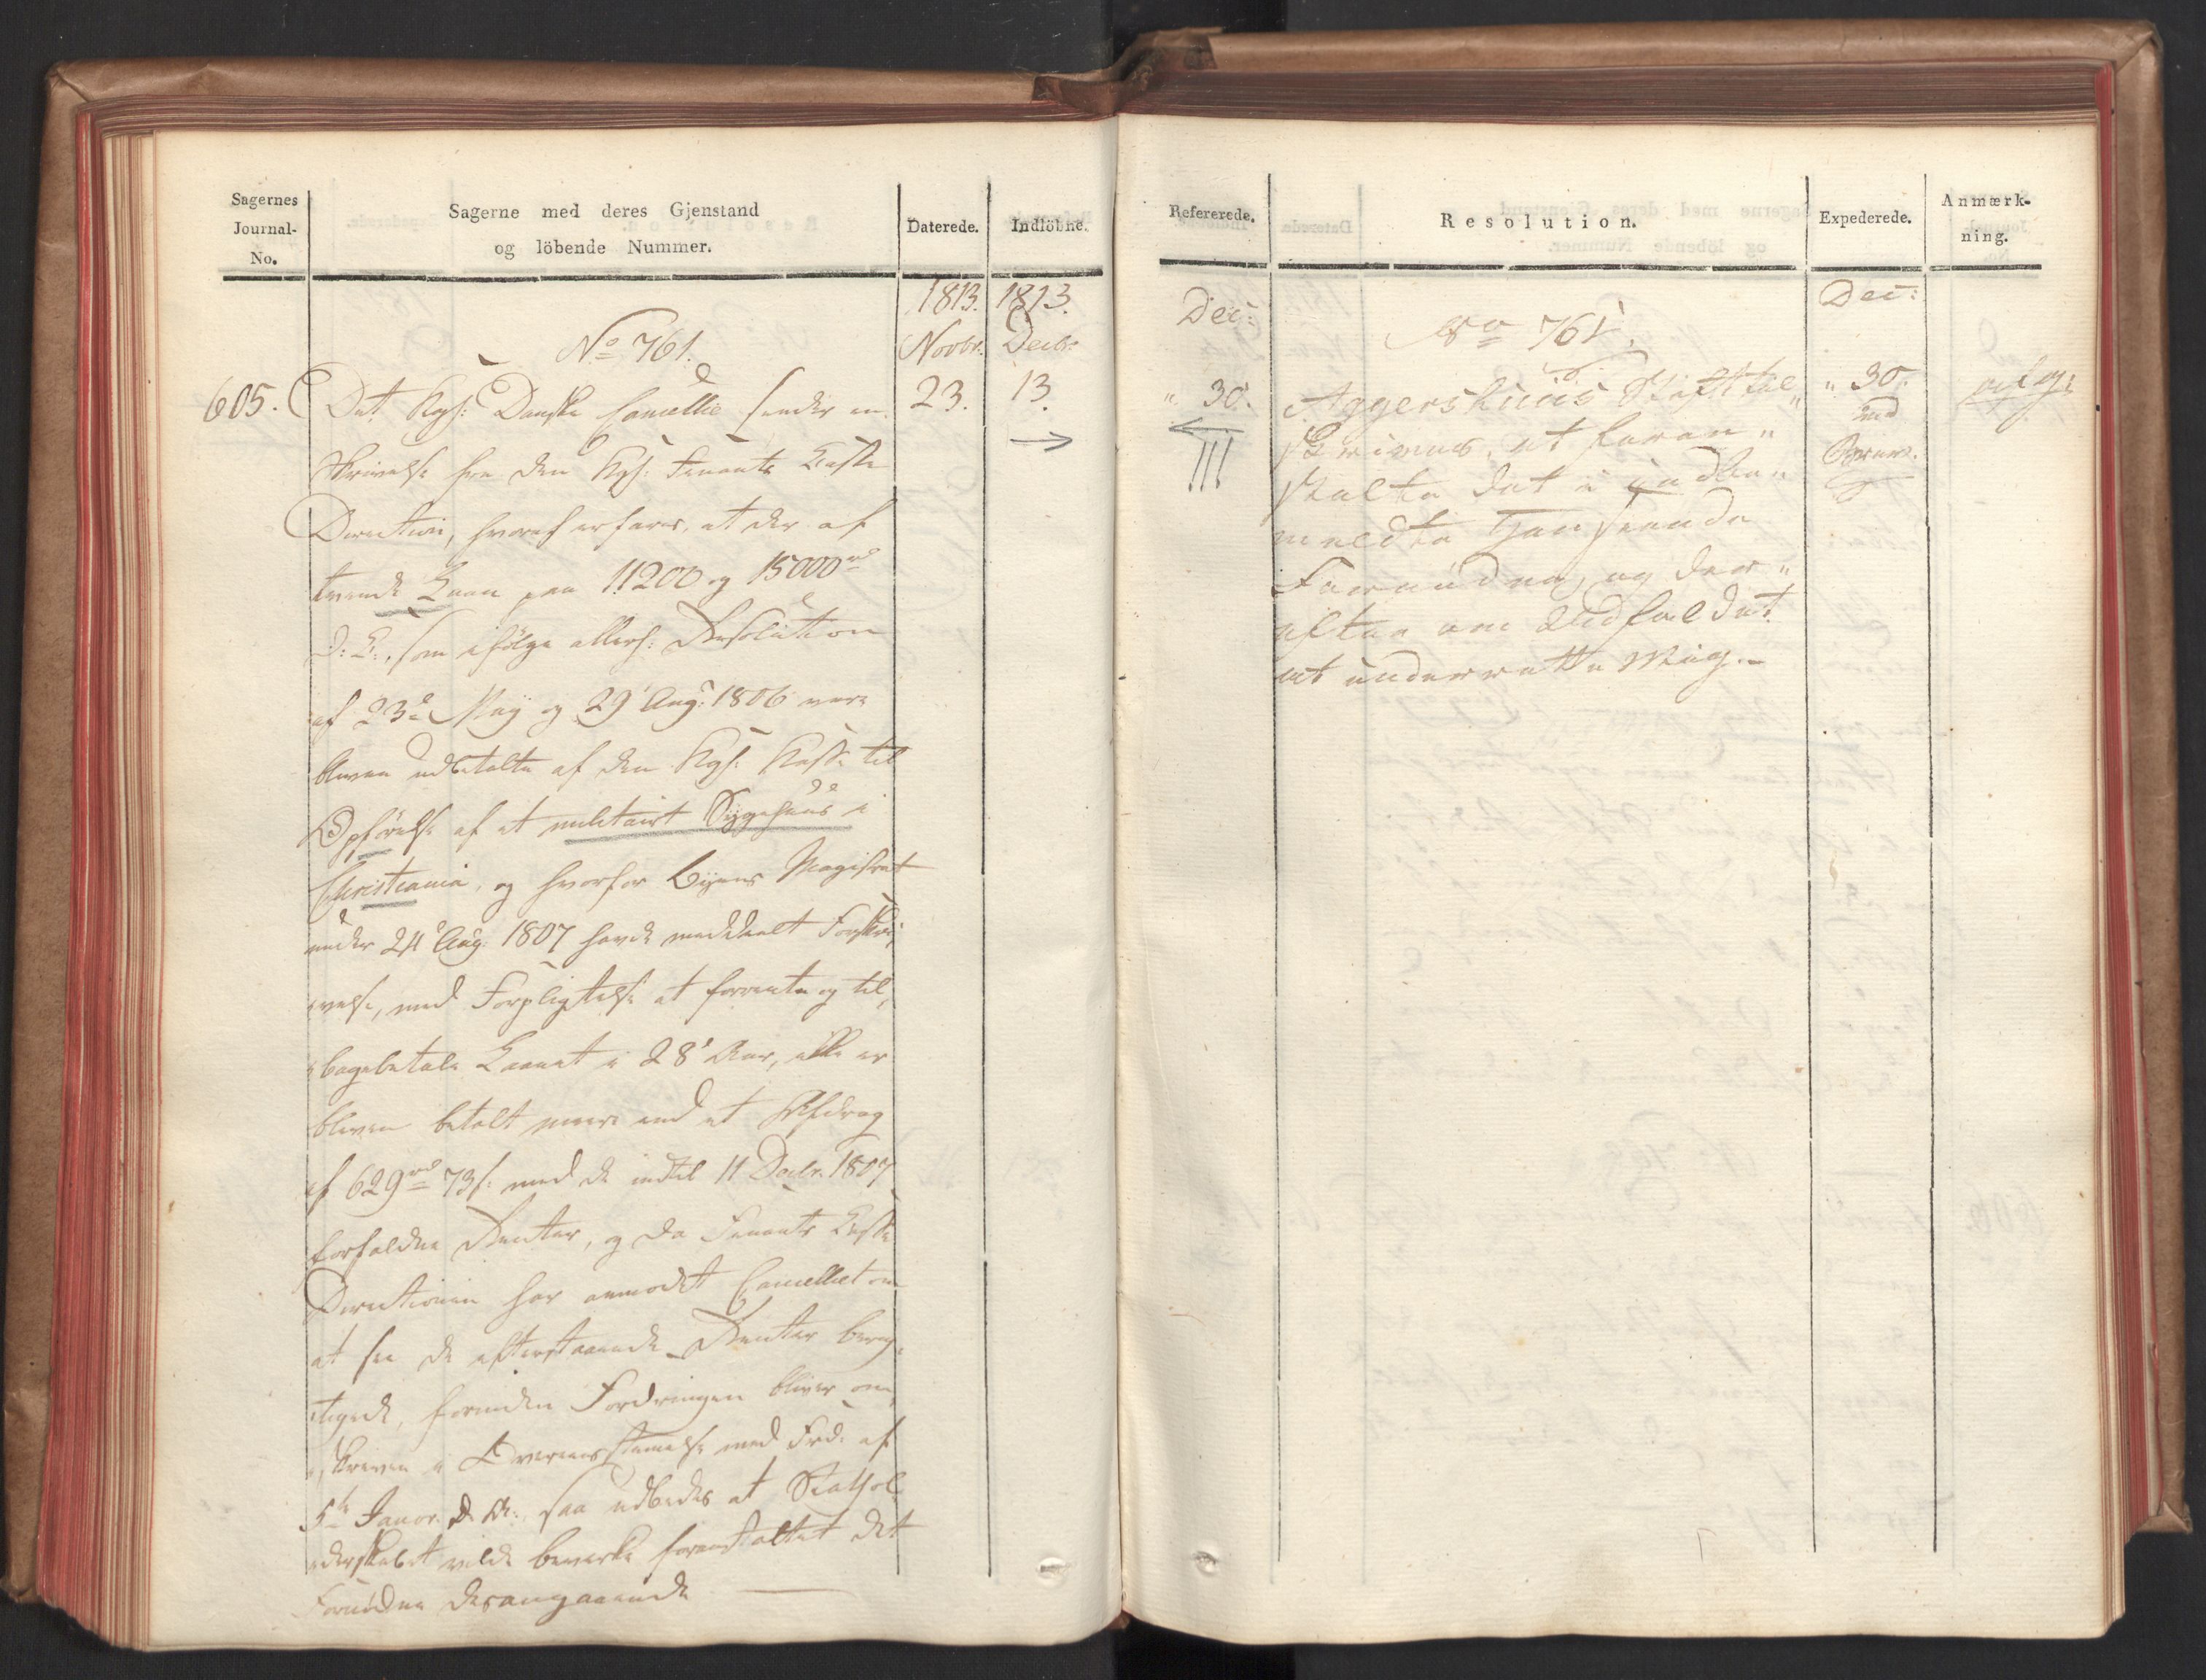 Sagernes
Journal-
No.
Sagerne med deres Gjenstand
og löbende Nummer.
Daterede.
Indlöbne.
1813.
1813.
Novbr.
Decbr.
No 761.
605.
23.
13.
Det Kgl: Danske Cancellie sender en
Skrivelse fra den Kgl: Finants Casse
Direction, hvoraf erfares, at der af
tvende Laan paa 11200 og 15000 rd
D: C:, som ifølge allerh: Resolution
af 23de May og 29 Aug: 1806 vare
blevne udbetalte af den Kgl: Kasse til
Opførelse af et militairt Sygehuus i
Christiania, og hvorfor Byens Magistrat
under 24 Aug: 1807 havde meddeelt Forskri,
velse, med Forpligtelse at forrente og til,
bagebetale Laanet i 28 Aar, ikke er
bleven betalt mere end et Afdrag
af 629 rd 73 s: med de indtil 11 Decbr. 1807
forfaldne Renter, og da Finants Casse
Directionen har anmodet Cancelliet om
at see de efterstaaende Renter berig,
tigede, forinden Fordringen bliver om,
skreven i Overeensstemmelse med Frd: af
5te Janr. d. A:, saa udbedes at Stathol,
derskabet vilde bevirke foranstaltet det
Fornødne desangaaende
Refererede.
Resolution.
Expederede.
Anmærk-
ning.
Dec:
Dec:
No 761.
" 30.
" 30.
Aggershuus Stift til,
skrives, at foran"
stalte det i indbe"
meldte Henseende
Fornødne, og der"
efter om Udfaldet
at underrette Mig.